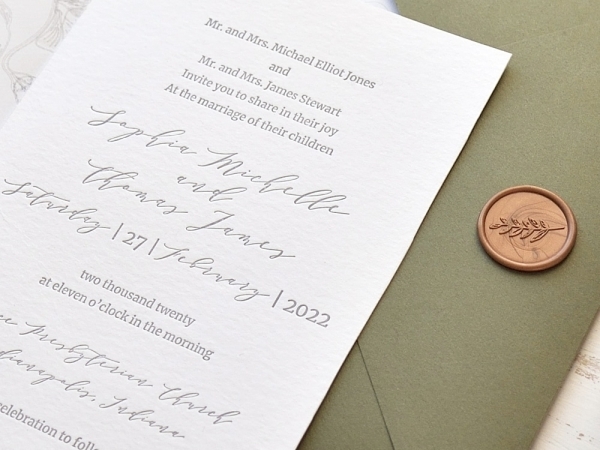 Mr. and Mrs. Michael Elliot Jones
and
Mr. and Mrs. James Stewart
Invite you to share in their joy
At the marriage of their children
Sophia Michelle
and
Thomas James
Saturday | 27 | February | 2022
two thousand twenty
at eleven o'clock in the morning
Presbyterian Church
Indianapolis, Indiana
celebration to